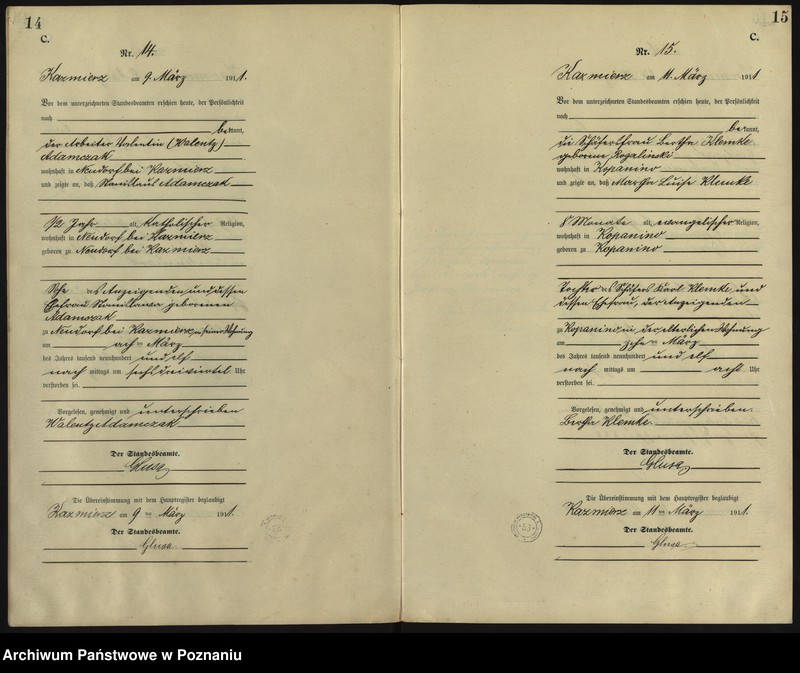 14
C.
Nr. 14.
Kazmierz am 9. März 1911.
Vor dem unterzeichneten Standesbeamten erschien heute, der Persönlichkeit
nach
bekannt,
der Arbeiter Valentin (Walenty)
Adamczak
wohnhaft in Neudorf bei Kazmierz
und zeigte an, daß Stanislaus Adamczak
1/2 Jahr alt, katholischer Religion,
wohnhaft in Neudorf bei Kazmierz
geboren zu Neudorf bei Kazmierz
Sohn des Anzeigenden und dessen
Ehefrau Stanislawa geborenen
Adamczak
zu Neudorf bei Kazmierz in seiner Wohnung
am acht ten März
des Jahres tausend neunhundert und elf
nach mittags um sechs dreiviertel Uhr
verstorben sei.
Vorgelesen, genehmigt und unterschrieben
Walenty Adamczak
Der Standesbeamte.
Glusa
Die Übereinstimmung mit dem Hauptregister beglaubigt
Kazmierz am 9 ten März 1911.
Der Standesbeamte.
Glusa
15
C.
Nr. 15.
Kazmierz am 11. März 1911
Vor dem unterzeichneten Standesbeamten erschien heute, der Persönlichkeit
nach
bekannt,
die Schäfersfrau Bertha Klemke
geborene Rogalinski
wohnhaft in Kopanino
und zeigte an, daß Martha Luise Klemke
8 Monate alt, evangelischer Religion,
wohnhaft in Kopanino
geboren zu Kopanino
Tochter des Schäfers Karl Klemke und
dessen Ehefrau, der Anzeigenden
zu Kopanino in der elterlichen Wohnung
am zehn ten März
des Jahres tausend neunhundert und elf
nach mittags um acht Uhr
verstorben sei.
Vorgelesen, genehmigt und unterschrieben.
Bertha Klemke.
Der Standesbeamte.
Glusa
Die Übereinstimmung mit dem Hauptregister beglaubigt
Kazmierz am 11 ten März 1911
Der Standesbeamte.
Glusa
Archiwum Państwowe w Poznaniu